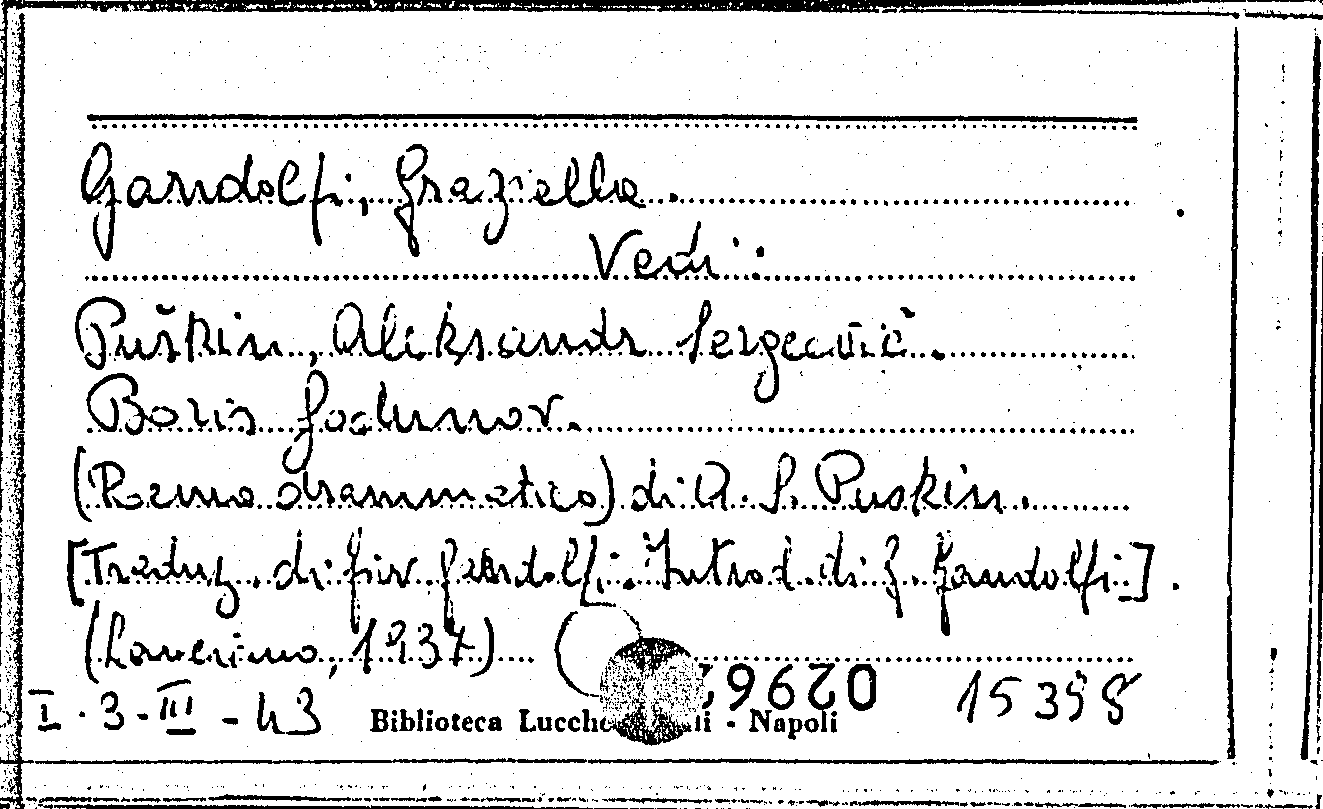 Gandolfi, Graziella.
Vedi:
Puškin, Aleksandr Sergeevič.
Boris Godunov.
(Remo drammatico) di A. S. Puskin.
[Traduz. di Gandolfi. Introd. di G. Gandolfi].
(Lanciano, 1937)
02962
I.3-III-43 Biblioteca - Napoli 15398